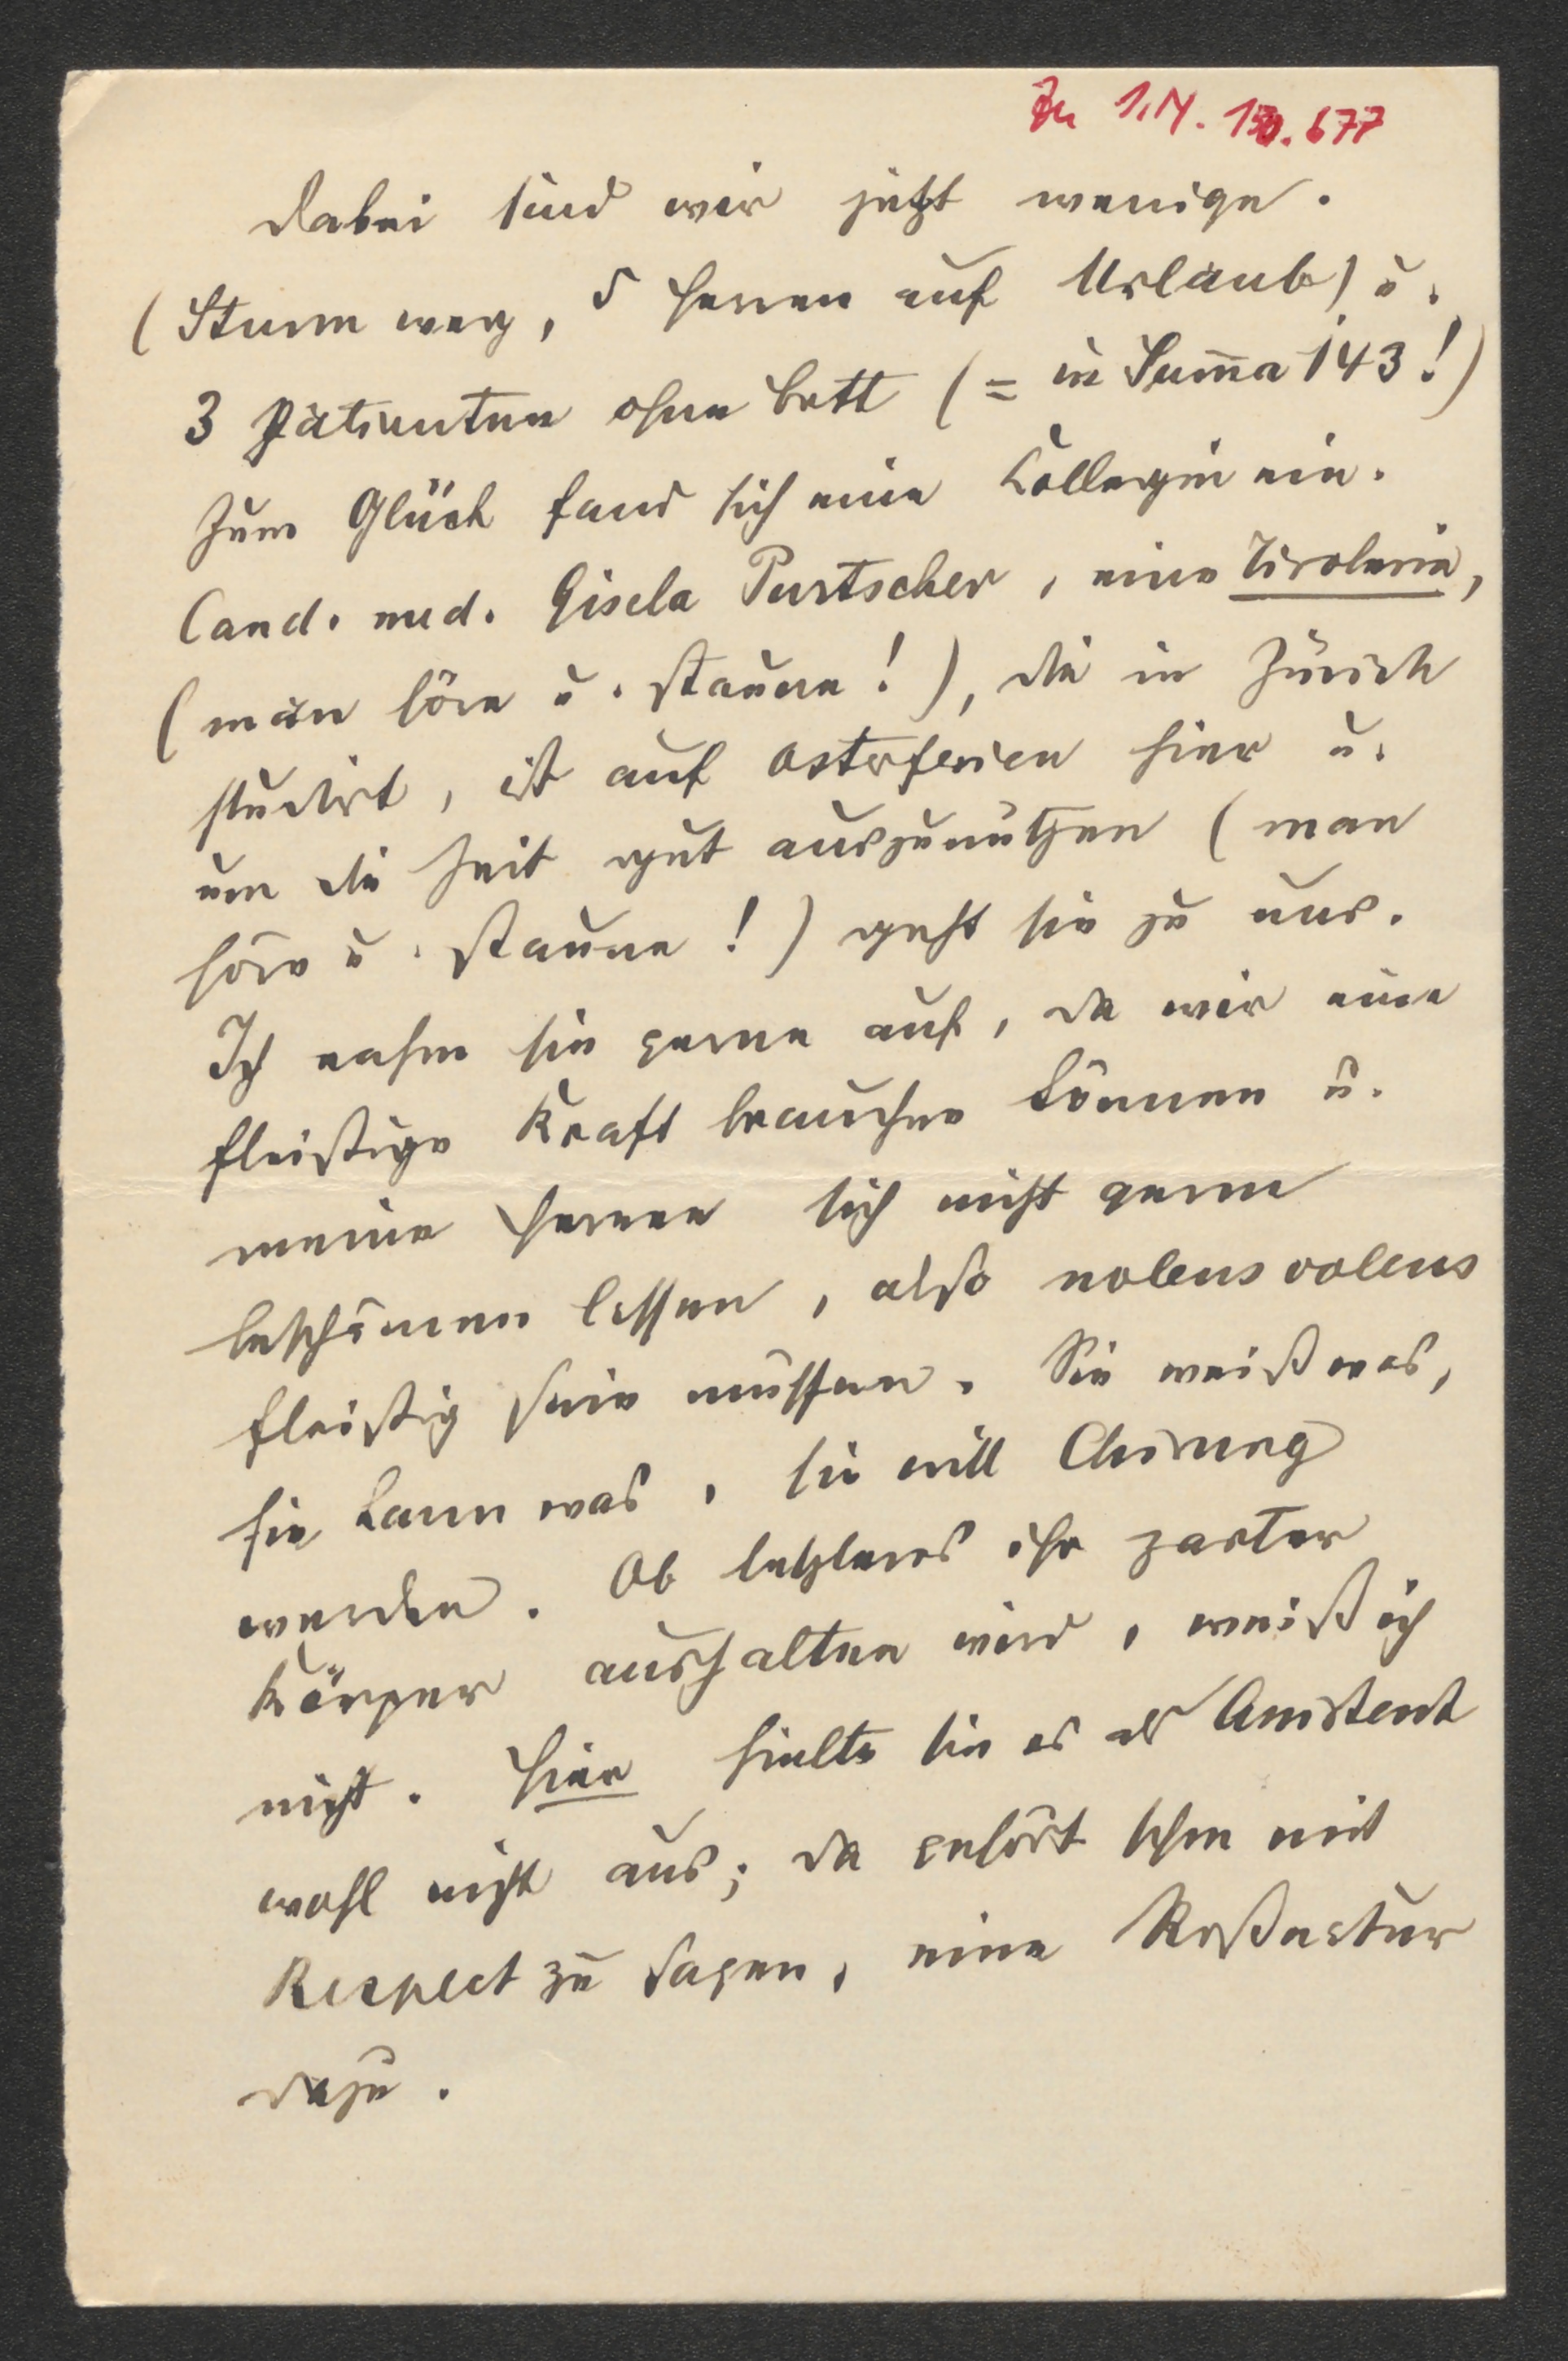 Zu I.N. 130.677
Dabei sind wir jetzt wenige.
(Sturm weg, 5 Herren auf Urlaub) u.
3 Patienten ohne Bett (= in Sum̄a 143!)
Zum Glück fand sich eine Kollegin ein.
Cand. med. Gisela Purtscher, eine Tirolerin,
(man höre u. staune!), die in Zürich
studirt, ist auf Osterferien hier u.
um die Zeit gut auszunützen (man
höre u. staune!) geht sie zu uns.
Ich nahm sie gerne auf, da wir eine
fleißige Kraft brauchen können u.
meine Herren sich nicht gerne
beschämen lassen, also nolens volens
fleißig sein müssen. Sie weiß was,
sie kann was, sie will Chirurg
werden. Ob letzteres ihr zarter
Körper aushalten wird, weiß ich
nicht. Hier hielte sie es als Assistent
wohl nicht aus; da gehört schon mit
Respect zu sagen, eine Roßnatur
dazu.